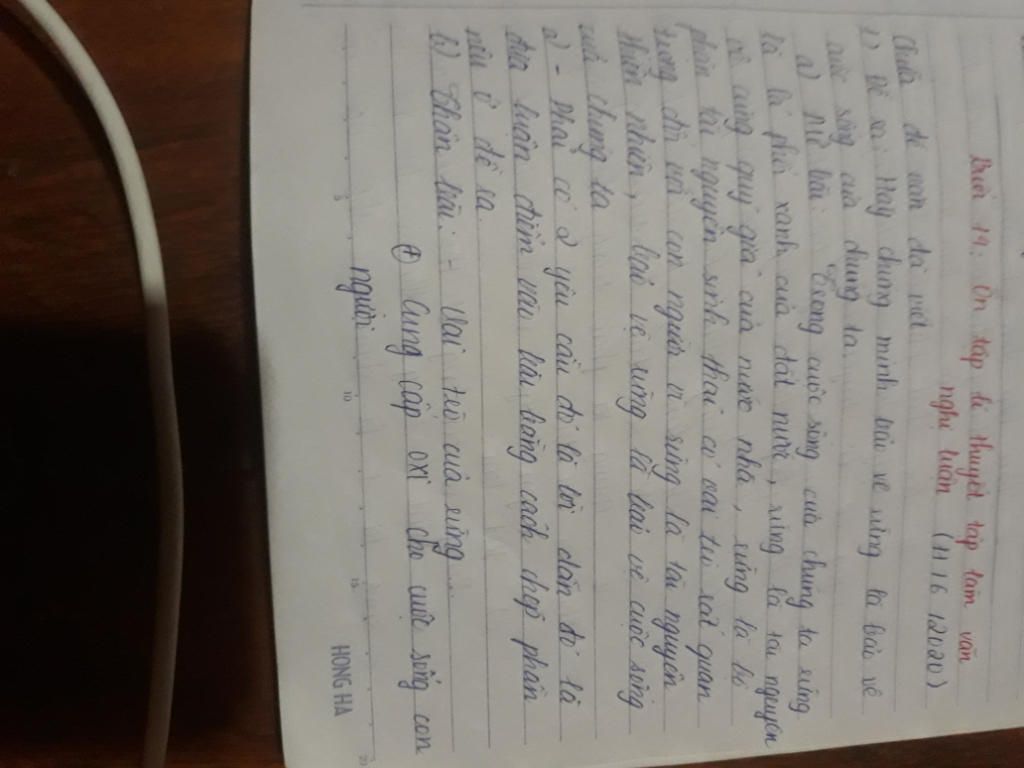 Buổi 19: Ôn tập lí thuyết tập làm văn
nghị luận (11/6/2020)
Chữa đề văn đã viết
1) Đề số: Hãy chứng minh bảo vệ rừng là bảo vệ
cuộc sống của chúng ta.
a) Mở bài: Trong cuộc sống của chúng ta rừng
là lá phổi xanh của đất nước, rừng là tài nguyên
vô cùng quý giá của nước nhà, rừng là bộ
phận tài nguyên sinh thái có vai trò rất quan
trọng đối với con người vì rừng là tài nguyên
thiên nhiên, bảo vệ rừng là bảo vệ cuộc sống
của chúng ta
a) - Phải có 2 yêu cầu đó là lời dẫn đó là
đưa luận điểm vào bài bằng cách chép phần
nêu ở đề ra.
b) Thân bài: - Vai trò của rừng
+ Cung cấp oxi cho cuộc sống con
người
HONG HA